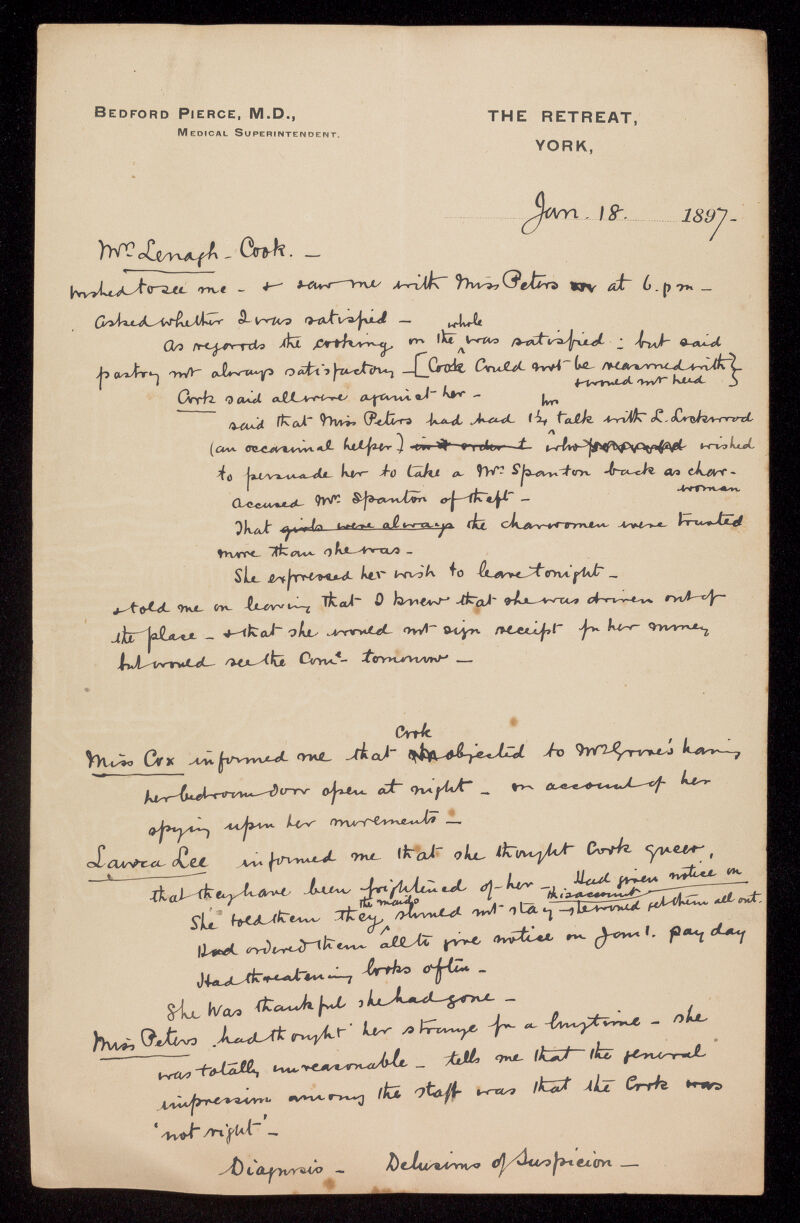 BEDFORD PIERCE, M.D.,
MEDICAL SUPERINTENDENT.
THE RETREAT,
YORK,
Jan. 18. 1897-
Mrs. Lenagh - Cook. -
wished to see me - & saw me with Miss Peters at 6. p m -
asked whether I was satisfied -
As regards the cooking on the whole was satisfied : but said
pastry not always satisfactory - [Cook could not be reasoned with}
& would not heed
Cook said all were against her -
said that Miss Peters had had 1¼ hrs talk with L. Lockwood
(an occasional helper) who wished
to persuade her to take a Mrs. Spanton back as char-
woman
Accused Mrs. Spanton of theft -
That girls were always the charwomen were trusted
more than she was -
She expressed her wish to leave tonight -
& told me on leaving that I knew that she was driven out of
the place - & that she would not sign receipt for her money
but would see the Comee. tomorrow -
Miss Cox informed me that Cook objected to having
her bedroom door open at night - on account of her
spying upon her movements -
Laura Lee informed me that she thought Cook queer,
that they have been frightened of her - Had given notice on
this account
She told them they the maids should not stay - she would get them all out.
Had ordered them all to give notice on Jan 1. pay day
Had threatening looks often -
She was thankful she had gone -
Miss Peters had thought her strange for a long time - she
was totally unreasonable - tells me that the general
impression among the staff was that the Cook was
'not right' -
Diagnosis - Delusions of Suspicion -